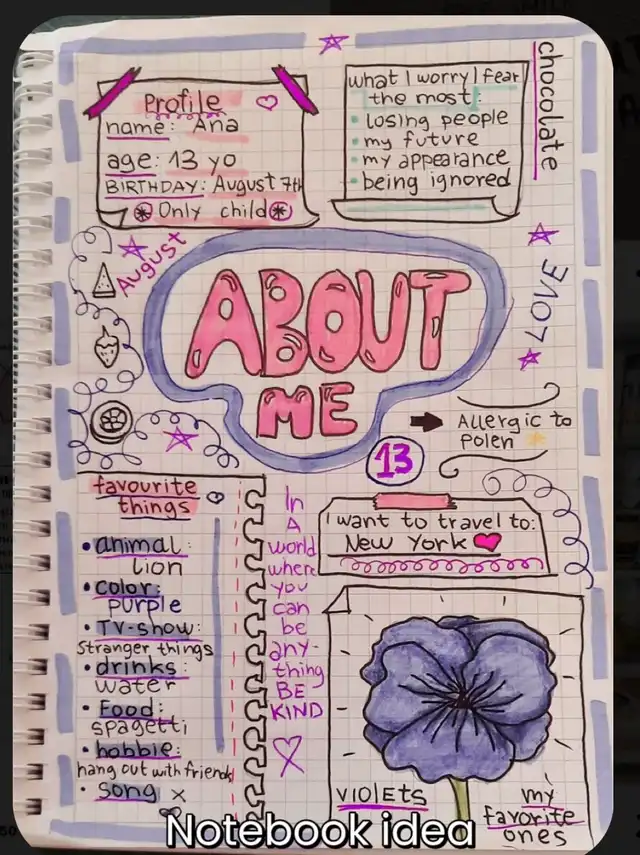 Profile
name: Ana
age: 13 yo
BIRTHDAY: August 7th
Only child
what I worry/fear
the most:
losing people
my future
my appearance
being ignored
chocolate
August
LOVE
ABOUT
ME
Allergic to
polen
13
favourite
things
animal:
lion
color:
purple
TV-show:
Stranger things
drinks:
water
Food:
spagetti
hobbie:
hang out with friends
song x
In
A
world
where
you
can
be
any-
thing
BE
KIND
I want to travel to:
New York
violets
my
favorite
ones
Notebook idea